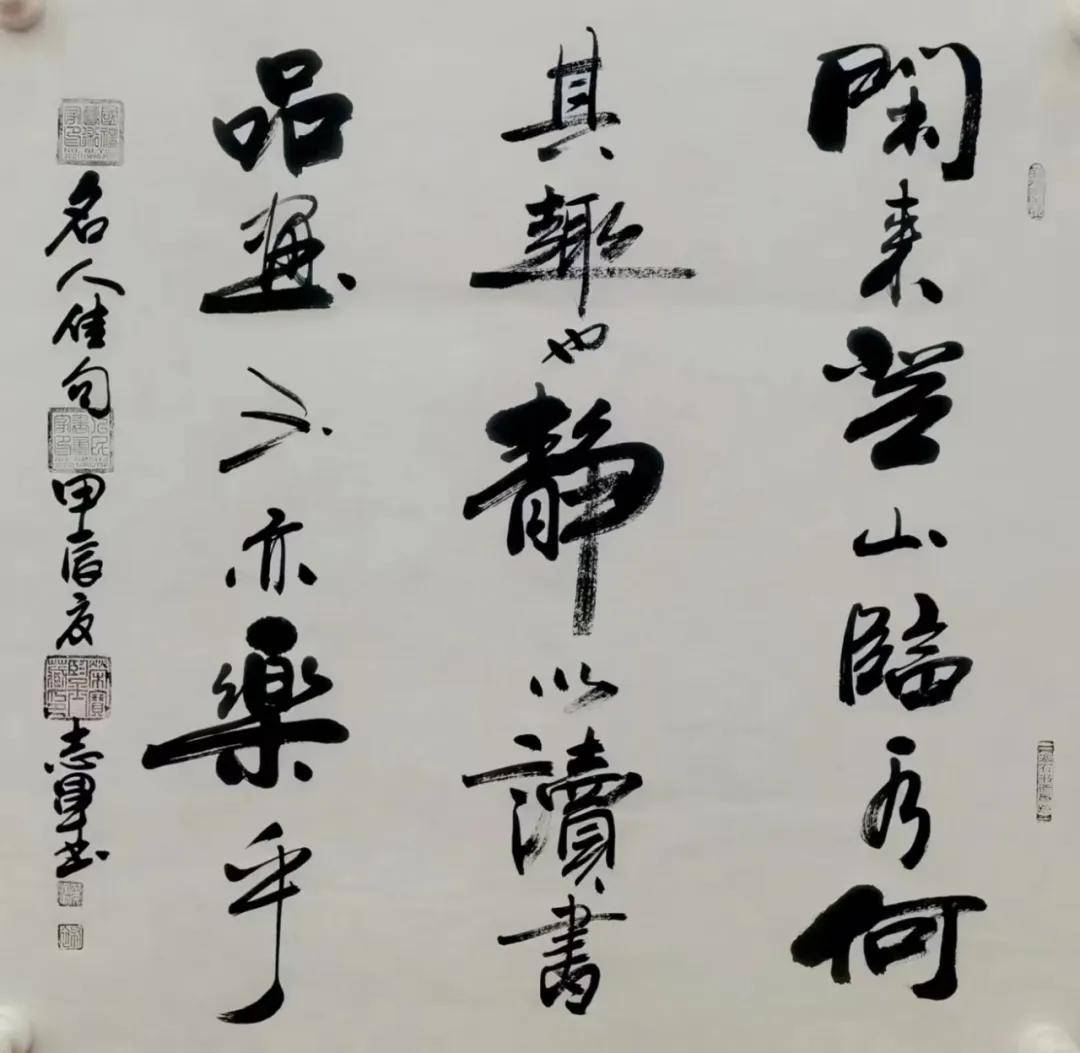 閑来登山臨水何
其趣也静以讀書
品畫不亦樂乎
名人佳句甲辰夏志書